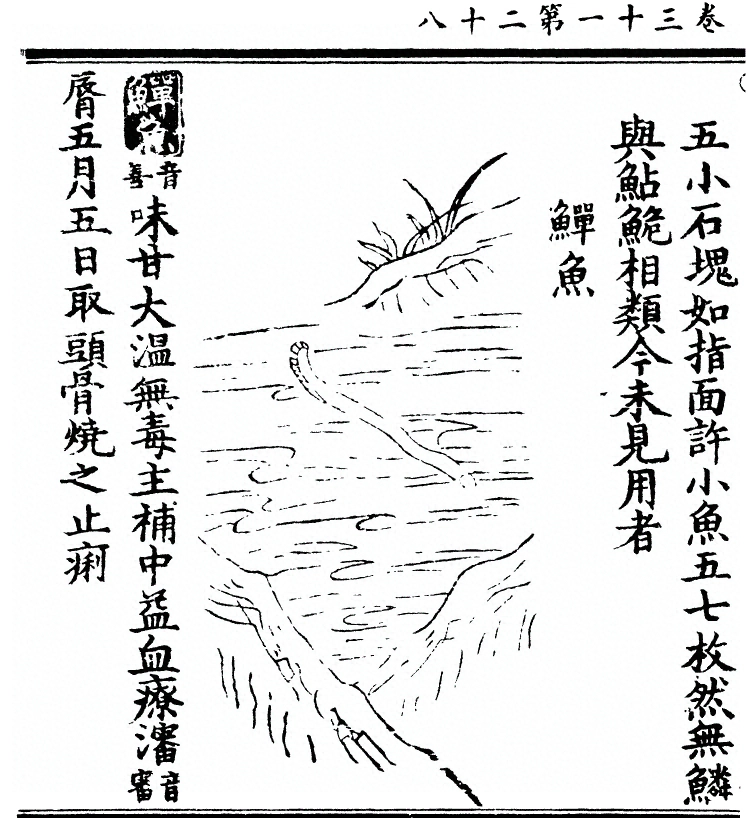 卷三十一第二十八
五小石塊如指面許小魚五七枚然無鱗
與鮎鮠相類今未見用者
鱓魚
鱓魚音善味甘大溫無毒主補中益血療瀋音審
脣五月五日取頭骨燒之止痢